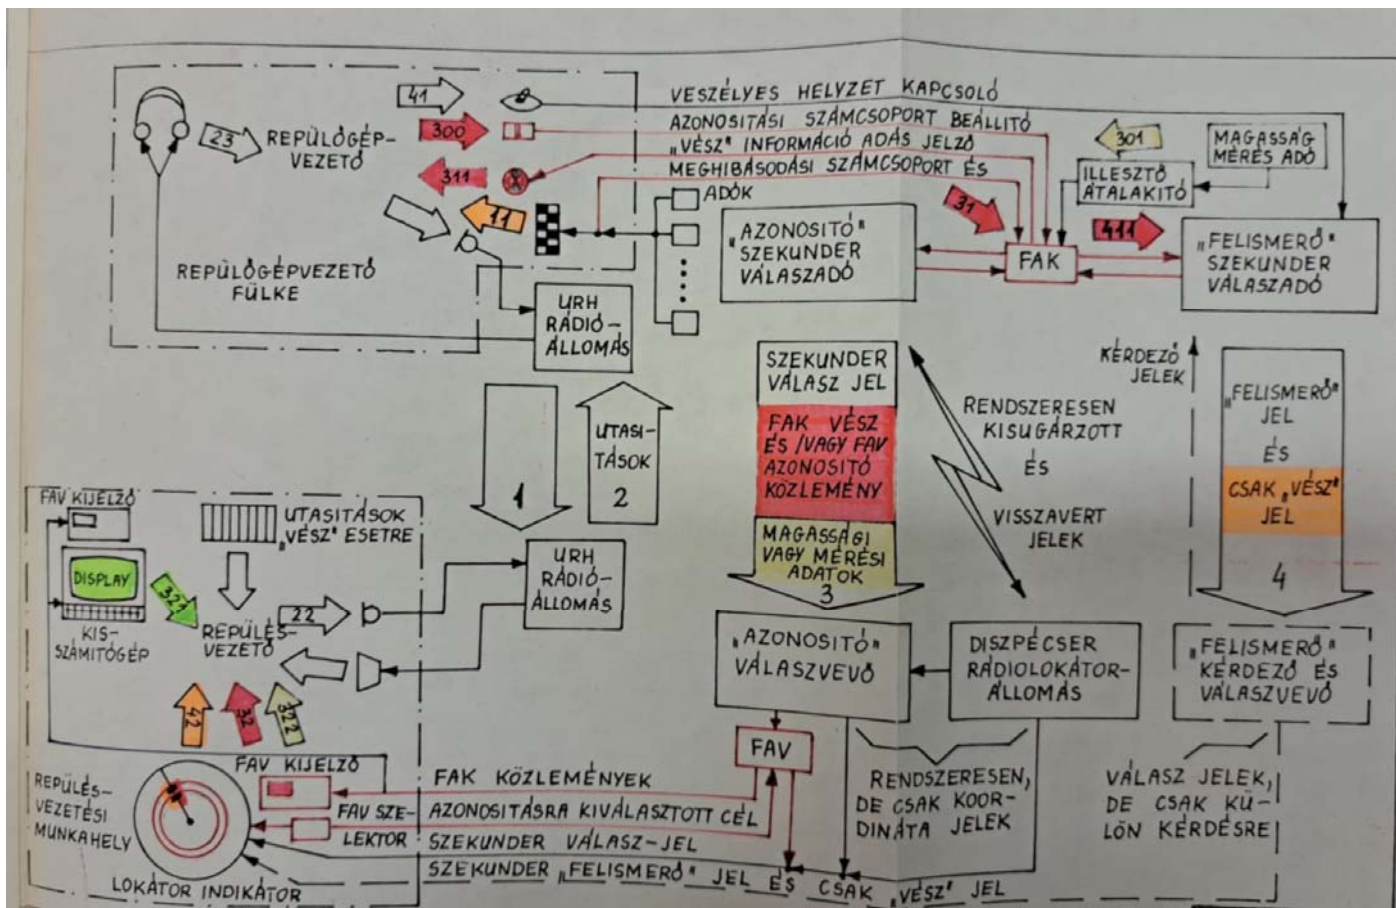 41
VESZÉLYES HELYZET KAPCSOLÓ
300
AZONOSITÁSI SZÁMCSOPORT BEÁLLITÓ
23
REPÜLŐGÉP-
VEZETŐ
„VÉSZ" INFORMÁCIÓ ADÁS JELZŐ
311
MEGHIBÁSODÁSI SZÁMCSOPORT ÉS
301
MAGASSÁG
MÉRÉS ADÓ
ILLESZTŐ
ÁTALAKITÓ
11
ADÓK
31
411
„AZONOSITÓ"
SZEKUNDER
VÁLASZADÓ
FAK
„FELISMERŐ"
SZEKUNDER
VÁLASZADÓ
REPÜLŐGÉPVEZETŐ
FÜLKE
URH
RÁDIÓ-
ÁLLOMÁS
1
UTASI-
TÁSOK
2
SZEKUNDER
VÁLASZ JEL
FAK VÉSZ
ÉS/VAGY FAV
AZONOSITÓ
KÖZLEMÉNY
MAGASSÁGI
VAGY MÉRÉSI
ADATOK
3
RENDSZERESEN
KISUGÁRZOTT
ÉS
VISSZAVERT
JELEK
KÉRDEZŐ
JELEK
„FELISMERŐ"
JEL
ÉS
CSAK „VÉSZ"
JEL
4
FAV KIJELZŐ
UTASITÁSOK
„VÉSZ" ESETRE
DISPLAY
321
KIS-
SZÁMITÓGÉP
REPÜLÉS-
VEZETŐ
22
URH
RÁDIÓ-
ÁLLOMÁS
42
32
322
„AZONOSITÓ"
VÁLASZVEVŐ
DISZPÉCSER
RÁDIOLOKÁTOR-
ÁLLOMÁS
„FELISMERŐ"
KÉRDEZŐ ÉS
VÁLASZVEVŐ
FAV
REPÜLÉS-
VEZETÉSI
MUNKAHELY
FAV KIJELZŐ
FAV SZE-
LEKTOR
FAK KÖZLEMÉNYEK
AZONOSITÁSRA KIVÁLASZTOTT CÉL
SZEKUNDER VÁLASZ-JEL
SZEKUNDER „FELISMERŐ" JEL ÉS CSAK „VÉSZ" JEL
RENDSZERESEN,
DE CSAK KOOR-
DINÁTA JELEK
VÁLASZ JELEK,
DE CSAK KÜ-
LÖN KÉRDÉSRE
LOKÁTOR INDIKÁTOR